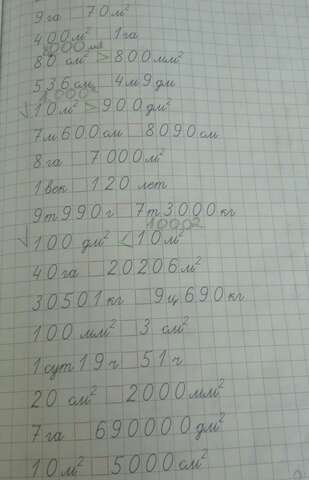 9 га □ 70 м²
400 м² □ 1 га
80 см² > 800 мм²
536 см □ 4 м 9 дм
10 м² > 900 дм²
7 м 600 см □ 8090 см
8 га □ 7000 м²
1 век □ 120 лет
9 т 990 г □ 7 т 3000 кг
1000²
100 дм² < 10 м²
40 га □ 20206 м²
30501 кг □ 9 ц 690 кг
100 мм² □ 3 см²
1 сут 19 ч □ 51 ч
20 см² □ 2000 мм²
7 га □ 690000 дм²
10 м² □ 5000 см²